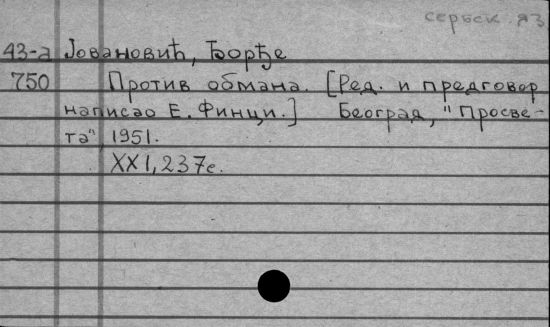 сербск. яз
43-а Јовановић, Ђорђе
750 Против обмана. [Ред. и предговор
написао Е. Финци.] Београд, "Просве-
та", 1951.
XXI, 237с.